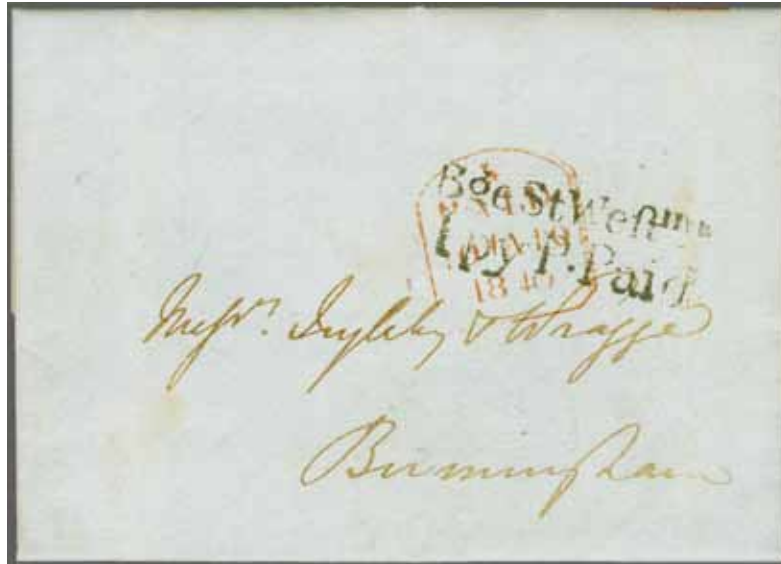 Bge St Westmn
1 py P. Paid
PAID
18
1840
Messrs. Ingleby & Wragge
Birmingham